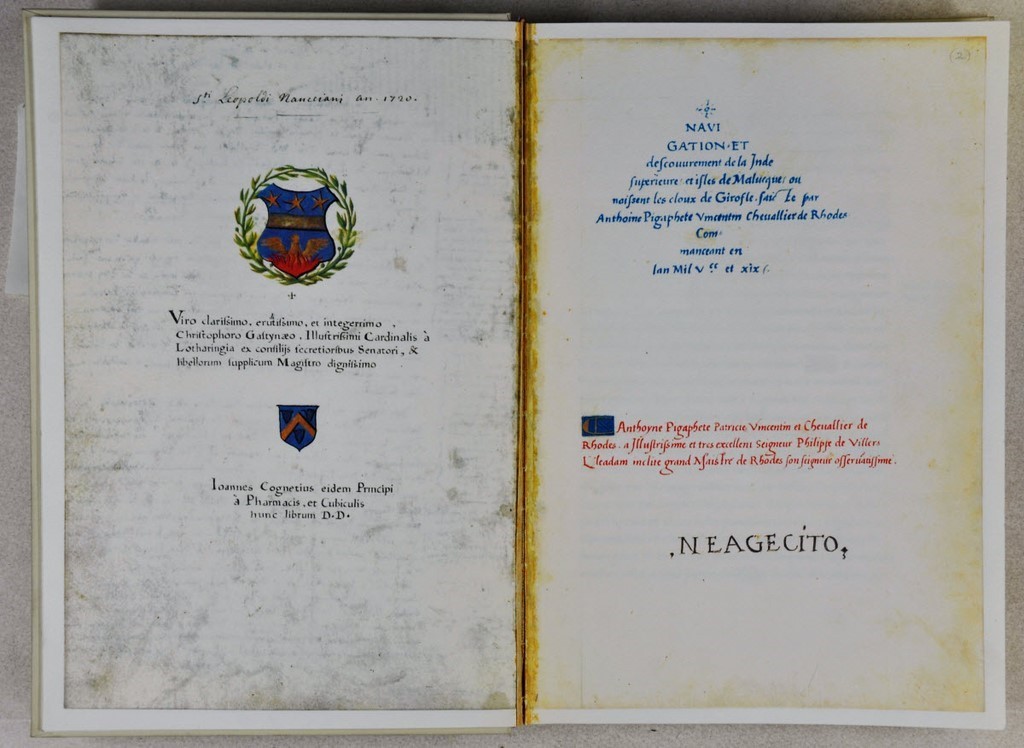 Sti Leopoldi Nanceiani an. 1720.
Viro clarissimo, eruditissimo, et integerrimo,
Christophoro Gastynæo, Illustrissimi Cardinalis à
Lotharingia ex consilijs secretioribus Senatori, &
libellorum supplicum Magistro dignissimo
Ioannes Cognetius eidem Principi
à Pharmacis, et Cubiculis
hunc librum D.D.
(2)
NAVI
GATION ET
descouurement de la Inde
superieure et isles de Malucque ou
naissent les cloux de Girofle. par
Anthoine Pigaphete Vincentin Cheuallier de Rhodes
Com
manceant en
lan Mil Vcc et xix
Anthoyne Pigaphete Patricie Vincentin et Cheuallier de
Rhodes. a Jllustrissime et tres excellent Seigneur Philippe de Villers
L'leadam inclite grand Maistre de Rhodes son seigneur osseruatissime.
NEAGECITO